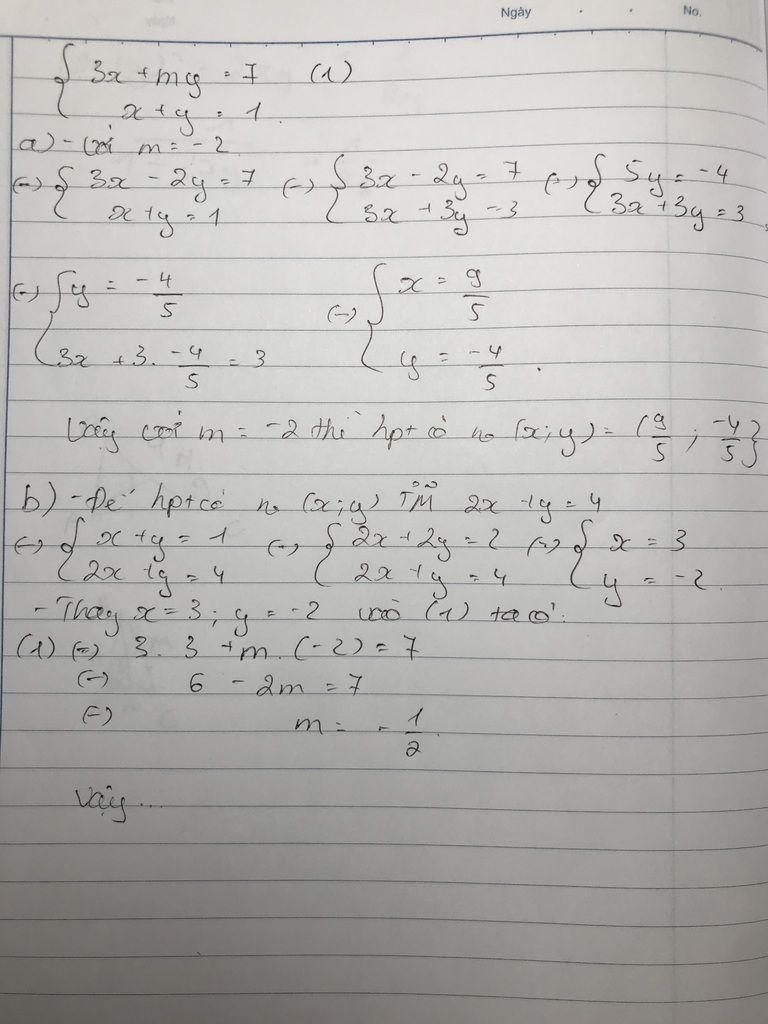 Ngày . . No.
{ 3x + my = 7 (1)
x + y = 1.
a) - Với m = -2
(=) { 3x - 2y = 7 (=) { 3x - 2y = 7 (=) { 5y = -4
x + y = 1 3x + 3y = 3 3x + 3y = 3
(=) { y = -4/5 (=) { x = 9/5
3x + 3. -4/5 = 3 y = -4/5.
Vậy với m = -2 thì hpt có no (x;y) = (9/5 ; -4/5}
b) - Để hpt có no (x;y) TM 2x + y = 4
(=) { x + y = 1 (=) { 2x + 2y = 2 (=) { x = 3
2x + y = 4 2x + y = 4 y = -2.
- Thay x = 3; y = -2 vào (1) ta có:
(1) (=) 3. 3 + m. (-2) = 7
(=) 6 - 2m = 7
(=) m = -1/2.
Vậy...